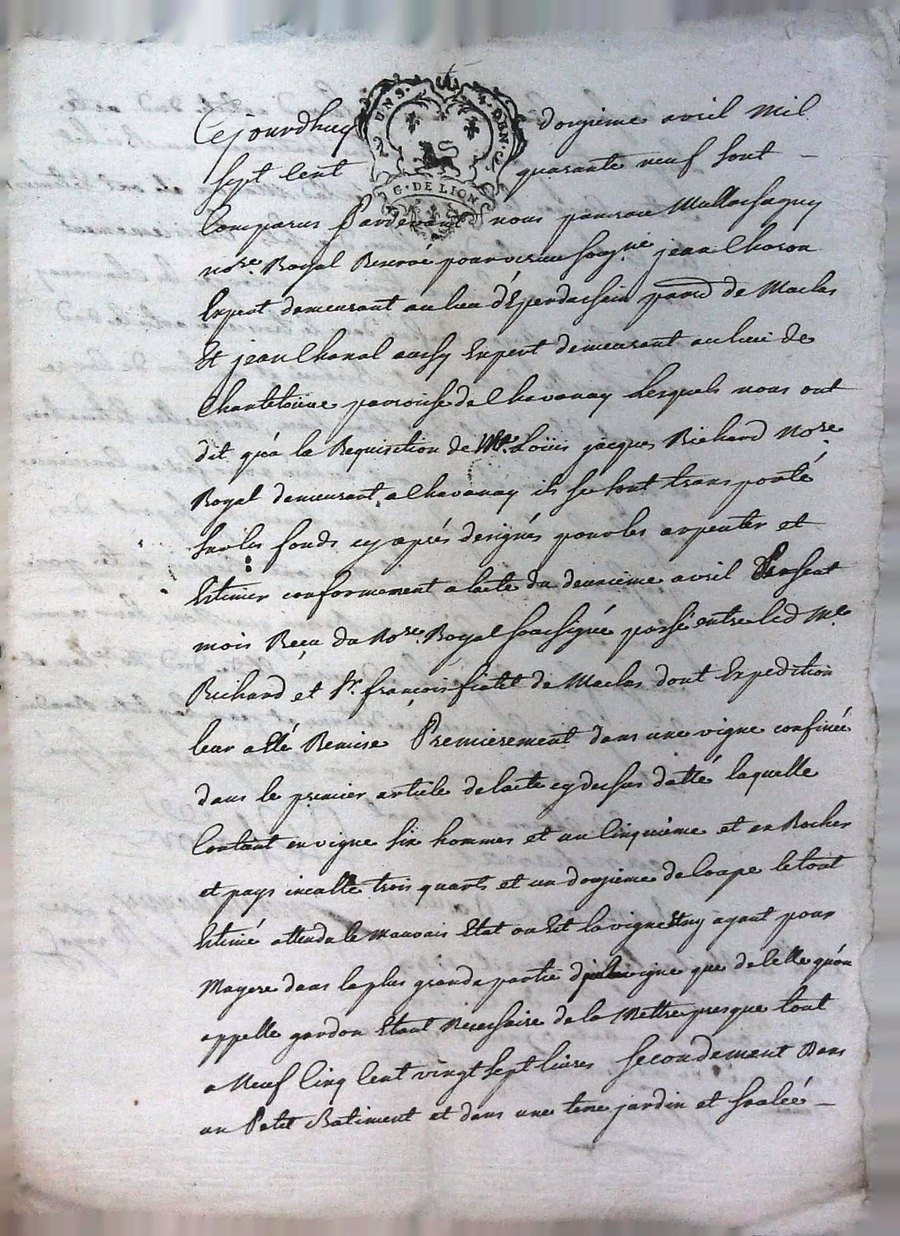 Cejourdhuy douzieme avril Mil
UN S. 4. DEN
Sept Cent quarante neuf Sont
G. DE LION
Comparus Pardevant nous
no.re Royal Reservé pour Jean Choron
Expert demeurant au lieu d'Eperdussein paroi.. de Maclas
Et jean Chanal aussy Expert demeurant au lieu de
Chantelouüe paroisse de Chavanay Lesquels nous ont
dit qu'a la Requisition de M.re Loüis jacques Richard No.re
Royal demeurant a Chavanay ils se sont transporté
Sur les fonds cy aprés designés pour les arpenter et
Estimer conformement a lacte du deuxieme avril Present
mois Reçu du No.re Royal Soussigné passé entre led M.e
Richard et S.r françois fiatet de Maclas dont Expedition
leur a eté Remise Premierement dans une vigne confinée
dans le premier article de lacte cy dessus datté laquelle
Contient en vigne Six hommes et un Cinquiéme et en Rocher
et pays inculte trois quarts et un douzieme de Coupe le tout
Estimé attendu le mauvais Etat ou Est la vigne Et ny ayant pour
Mayere dans la plus grande partie de la vigne que de Celle qu'on
appelle gardon Etant Necessaire de la Mettre presque tout
a Neuf Cinq Cent vingt Sept livres Secondement Dans
un Petit Batiment et dans une terre jardin et